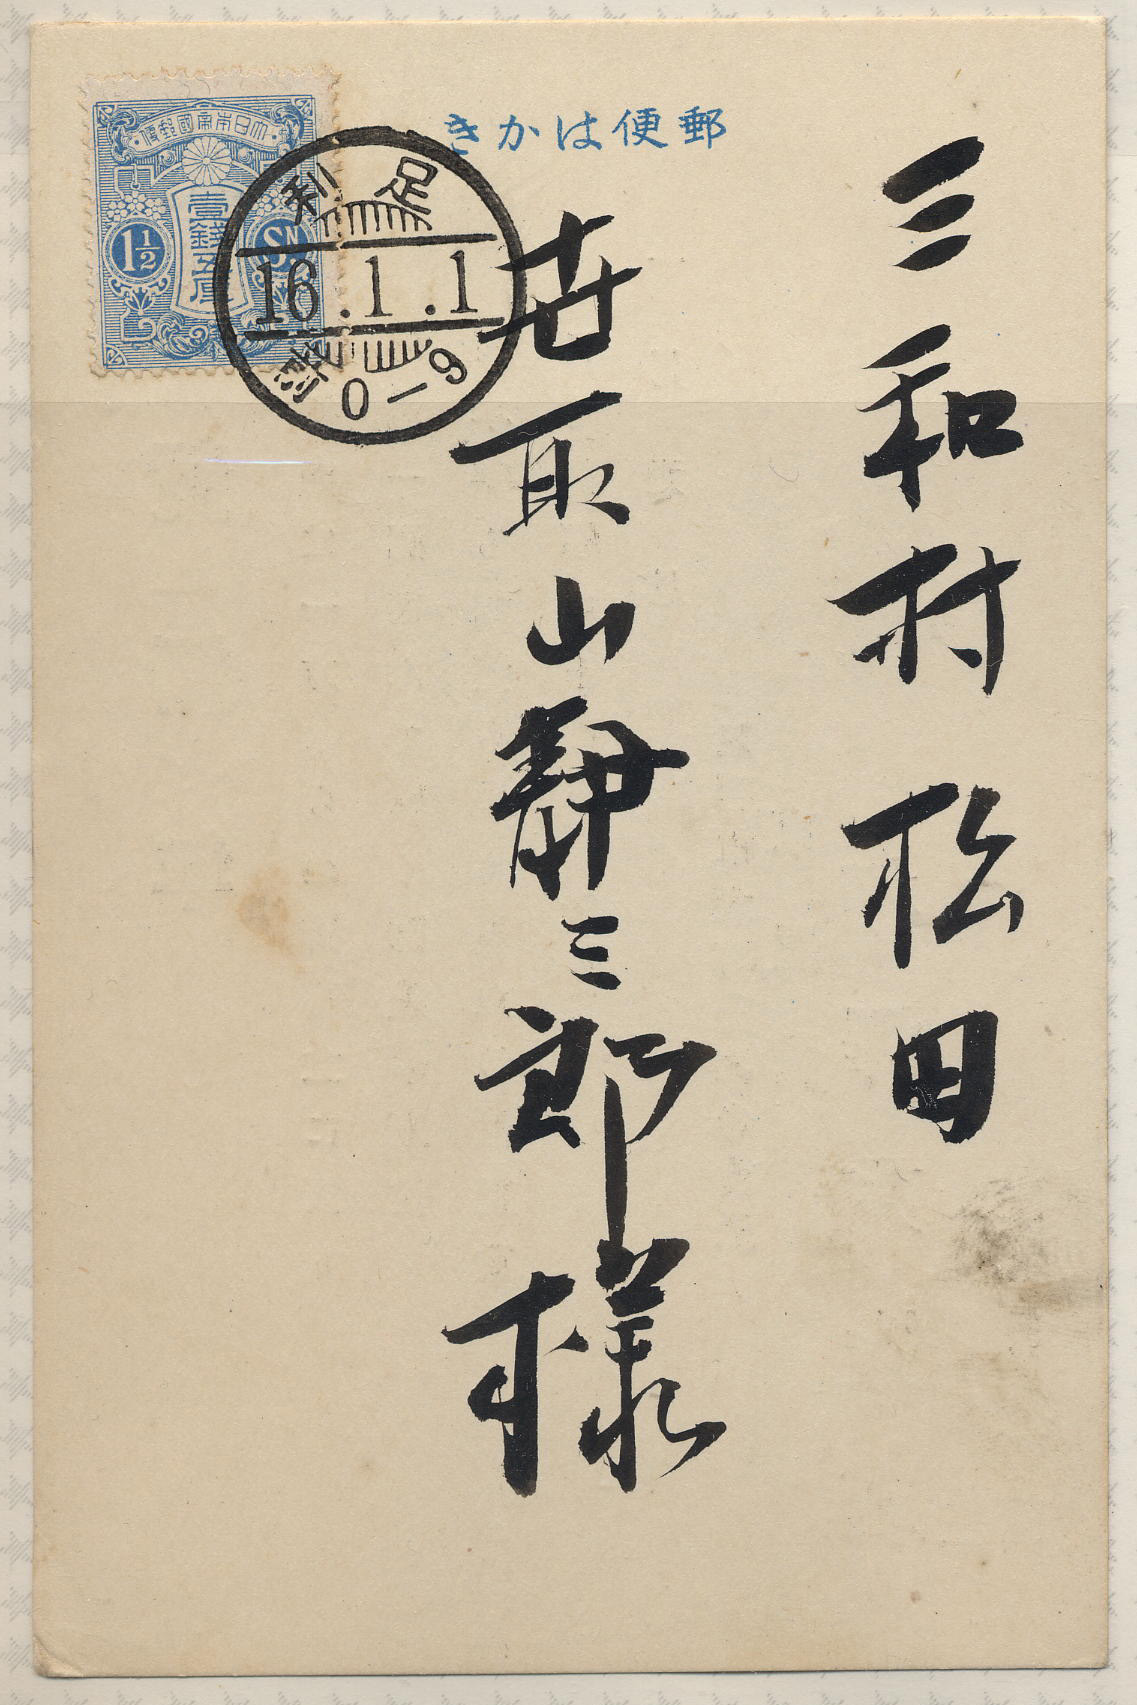 郵便はかき
大日本帝國郵便
壹錢五厘
1½
SN.
足利
16.1.1
前0-9
三和村 松田
世取山靜三郎様